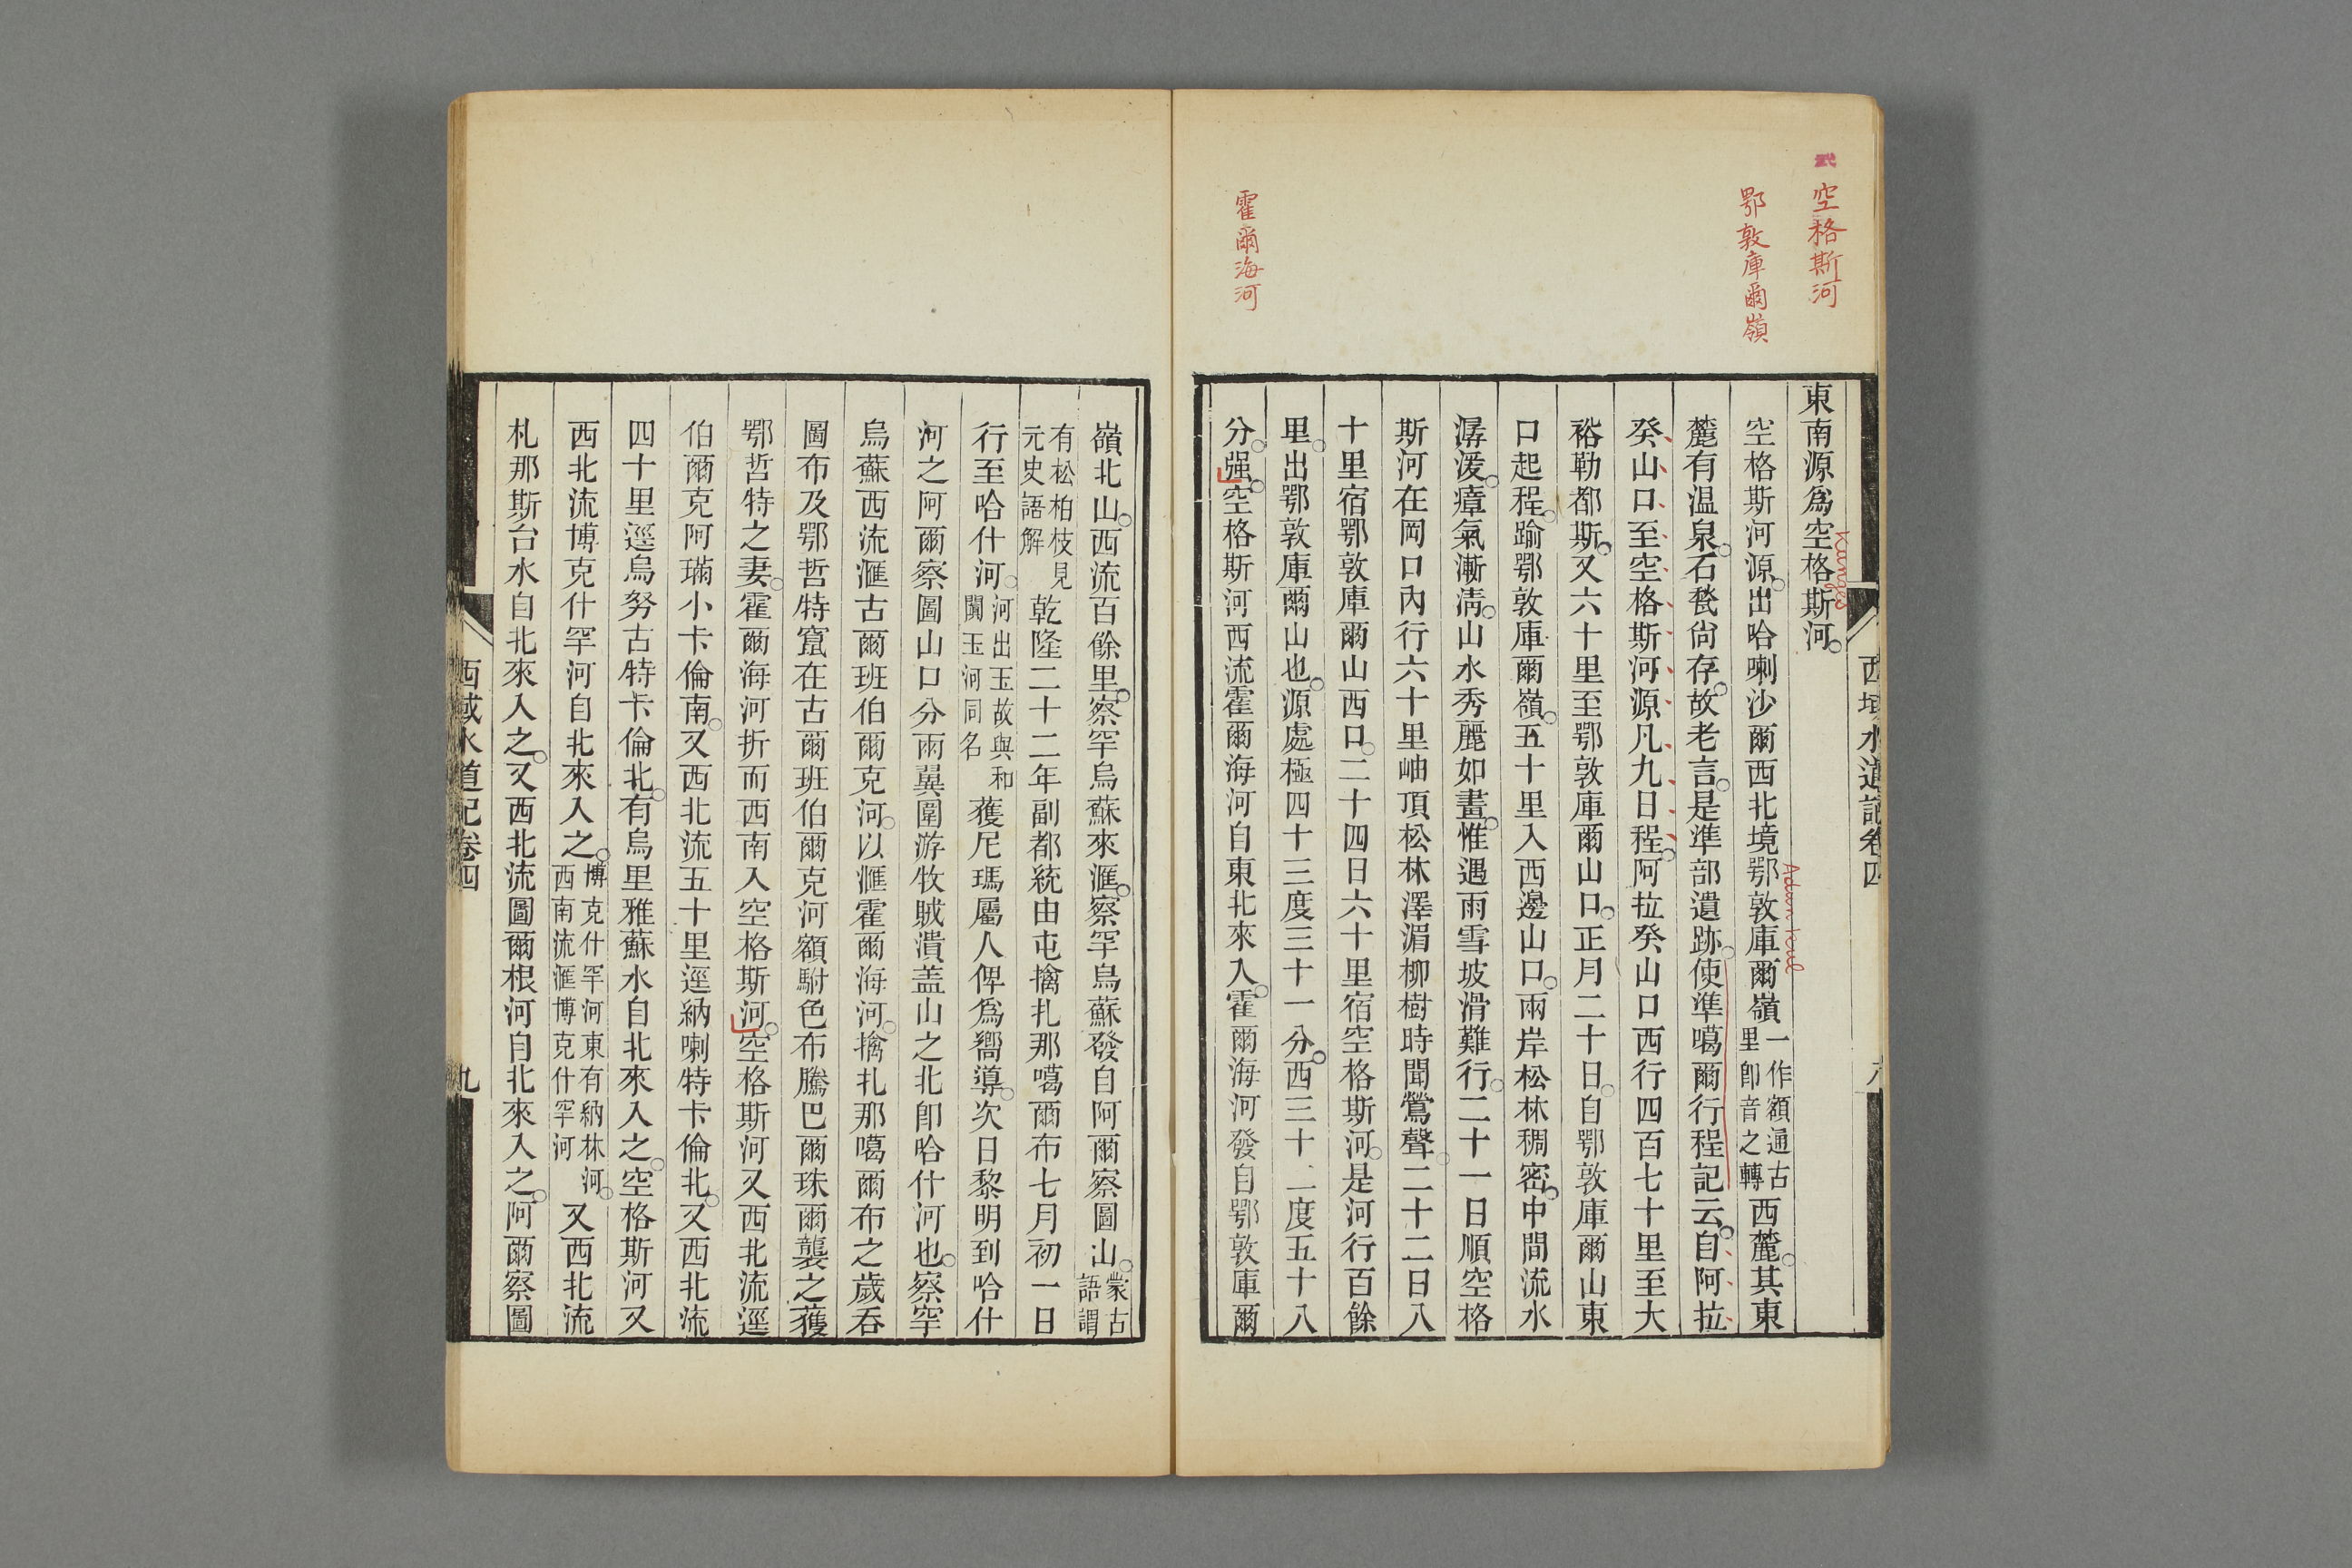 武
空格斯河
鄂敦庫爾嶺
霍爾海河
西域水道記卷四
東南源爲空格斯河
Kunges
空格斯河源出哈喇沙爾西北境鄂敦庫爾嶺一作額通古里卽音之轉西麓其東
麓有温泉石甃尙存故老言是準部遺跡使準噶爾行程記云自阿拉
癸山口至空格斯河源凡九日程阿拉癸山口西行四百七十里至大
裕勒都斯又六十里至鄂敦庫爾山口正月二十日自鄂敦庫爾山東
口起程踰鄂敦庫爾嶺五十里入西邊山口兩岸松林稠密中間流水
潺湲瘴氣漸淸山水秀麗如畫惟遇雨雪坡滑難行二十一日順空格
斯河在岡口內行六十里岫頂松林澤湄柳樹時聞鶯聲二十二日八
十里宿鄂敦庫爾山西口二十四日六十里宿空格斯河是河行百餘
里出鄂敦庫爾山也源處極四十三度三十一分西三十二度五十八
分强空格斯河西流霍爾海河自東北來入霍爾海河發自鄂敦庫爾
嶺北山西流百餘里察罕烏蘇來滙察罕烏蘇發自阿爾察圖山蒙古語謂
有松柏枝見元史語解乾隆二十二年副都統由屯擒扎那噶爾布七月初一日
行至哈什河河出玉故與和闐玉河同名獲尼瑪屬人俾爲嚮導次日黎明到哈什
河之阿爾察圖山口分兩翼圍游牧賊潰盖山之北卽哈什河也察罕
烏蘇西流滙古爾班伯爾克河以滙霍爾海河擒扎那噶爾布之歲呑
圖布及鄂哲特竄在古爾班伯爾克河額駙色布騰巴爾珠爾襲之獲
鄂哲特之妻霍爾海河折而西南入空格斯河空格斯河又西北流逕
伯爾克阿璊小卡倫南又西北流五十里逕納喇特卡倫北又西北流
四十里逕烏努古特卡倫北有烏里雅蘇水自北來入之空格斯河又
西北流博克什罕河自北來入之博克什罕河東有納林河西南流滙博克什罕河又西北流
札那斯台水自北來入之又西北流圖爾根河自北來入之阿爾察圖
西域水道記卷四
九